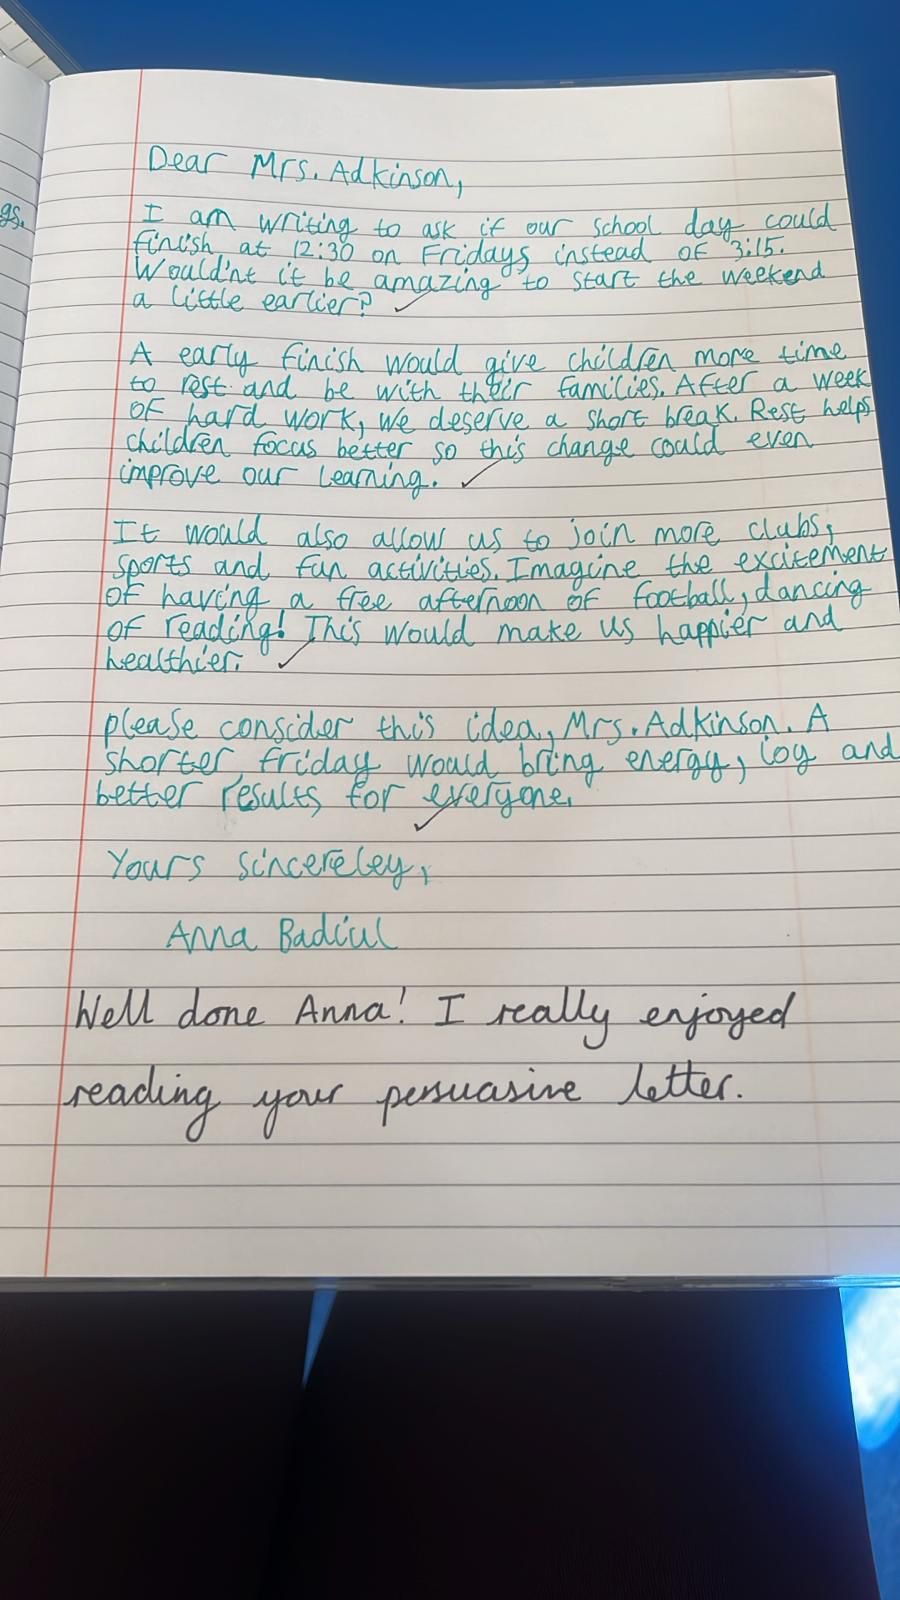 Dear Mrs. Adkinson,
gs.
I am writing to ask if our school day could
finish at 12:30 on Fridays instead of 3:15.
Would'nt it be amazing to start the weekend
a little earlier?
A early finish would give children more time
to rest and be with their families. After a week
of hard work, we deserve a short break. Rest helps
children focus better so this change could even
improve our learning.
It would also allow us to join more clubs,
sports and fun activities. Imagine the excitement
of having a free afternoon of football, dancing
of reading! This would make us happier and
healthier.
please consider this idea, Mrs. Adkinson. A
shorter friday would bring energy, ioy and
better results for everyone.
Yours sincereley,
Anna Badiul
Well done Anna! I really enjoyed
reading your persuasive letter.